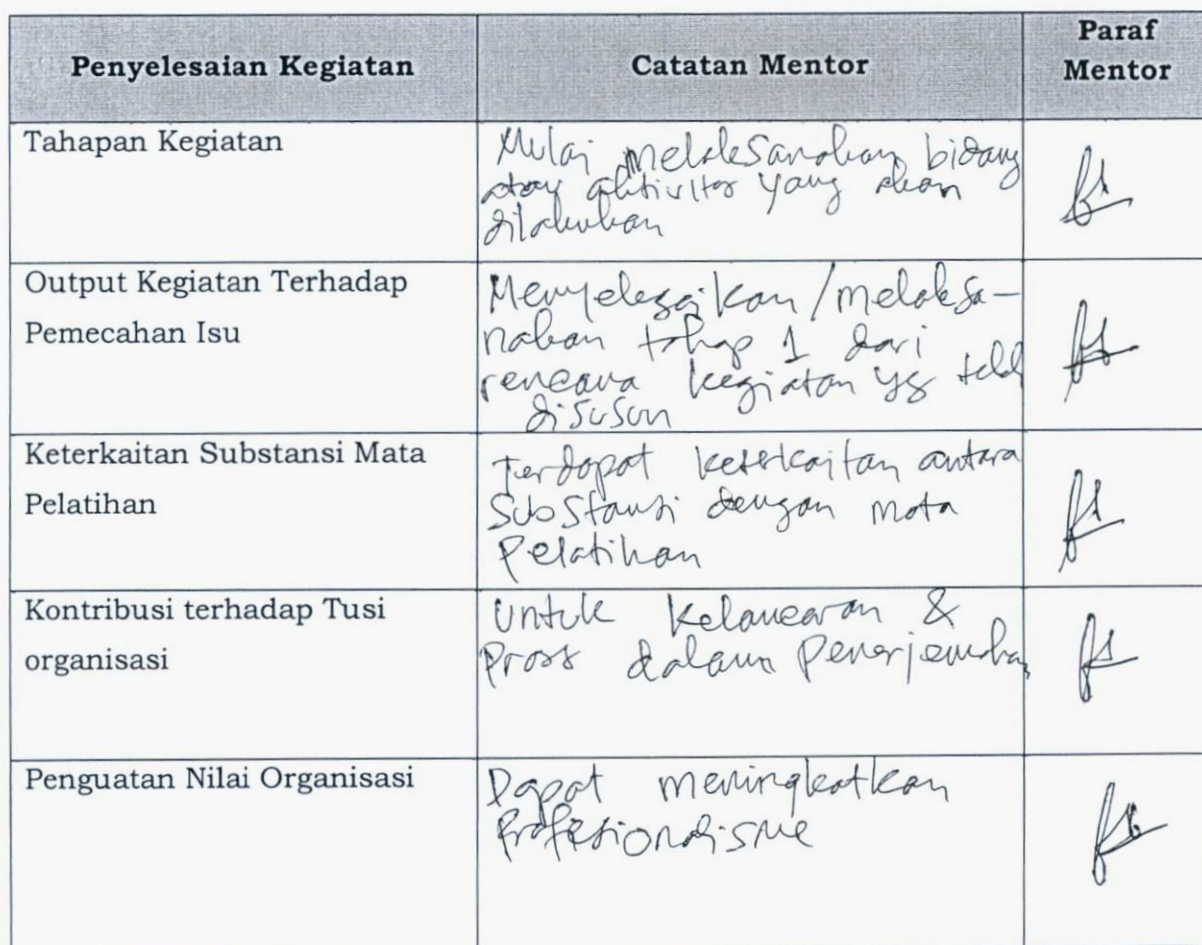 Penyelesaian Kegiatan
Catatan Mentor
Paraf
Mentor
Tahapan Kegiatan
Mulai melaksanakan bidang
atau aktivitas yang akan
dilakukan
Output Kegiatan Terhadap
Pemecahan Isu
Menyelesaikan/melaksa-
nakan tahap 1 dari
rencana kegiatan yg telah
disusun
Keterkaitan Substansi Mata
Pelatihan
Terdapat keterkaitan antara
Substansi dengan mata
Pelatihan
Kontribusi terhadap Tusi
organisasi
Untuk Kelancaran &
dalam Penerjemahan
Penguatan Nilai Organisasi
Dapat meningkatkan
Profesionalisme